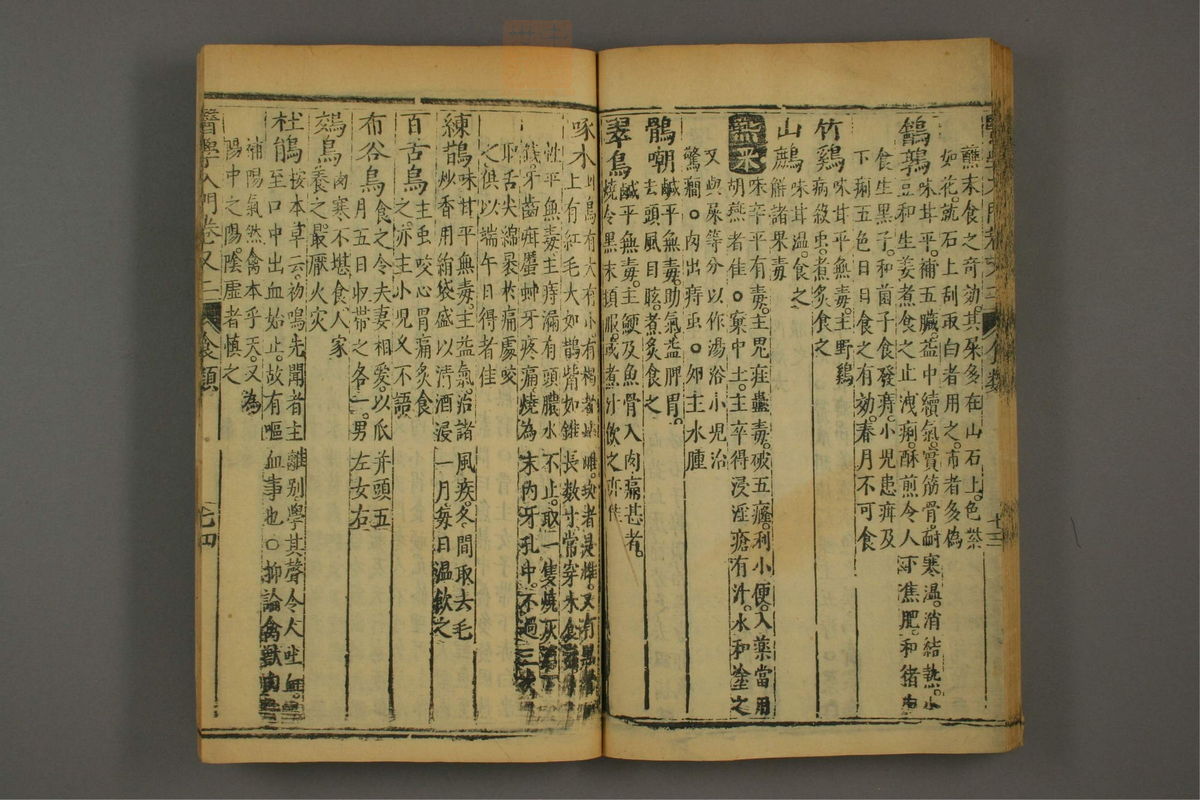 蘸末食之奇効其屎多在山石上色紫
如花就石上刮取白者用之市者多偽
鵪鶉味甘平補五臟益中續氣實筋骨耐寒温消結熱小
豆和生姜煮食之止洩痢酥煎令人下焦肥和猪肉
食生黒子和菌子食發痔小児患疳及
下痢五色日日食之有効春月不可食
竹鷄味甘平無毒主野鷄
病殺虫煮炙食之
山鷓味甘温食之
解諸果毒
燕屎味辛平有毒主鬼疰蠱毒破五癃利小便入藥當用
胡燕者佳○窠中土主卒得浸淫瘡有汁水和塗之
又與屎等分以作湯浴小児治
驚癇○肉出痔虫○卵主水腫
鶻嘲鹹平無毒助氣益脾胃
去頭風目眩煮炙食之
翠鳥鹹平無毒主鯁及魚骨入肉痛甚者
燒令黒末頓服或煮汁飲之亦佳
啄木此鳥有大有小有褐者是雌斑者是雄又有黒者
上有紅毛大如鵲觜如錐長数寸常穿木食
性平無毒主痔漏有頭膿水不止取一隻燒灰酒下
牙齒疳䘌蚛牙疼痛燒為末内牙孔中不過三次
取舌尖綿裹於痛處咬
之俱以端午日得者佳
練鵲味甘平無毒主益氣治諸風疾冬間取去毛
炒香用絹袋盛以清酒浸一月每日温飲之
百舌鳥主虫咬心胃痛炙食
之亦主小児乆不語
布谷鳥食之令夫妻相愛以爪并頭五
月五日収帶之各一男左女右
鳥肉寒不堪食人家
養之最厭火灾
杜鵑按本草云初鳴先聞者主離别學其聲令人吐血
至口中出血始止故有嘔血事也○抑論禽獸肉
補陽氣然禽本乎天又為
陽中之陽陰虚者慎之
醫學入門卷又二 食類 七四